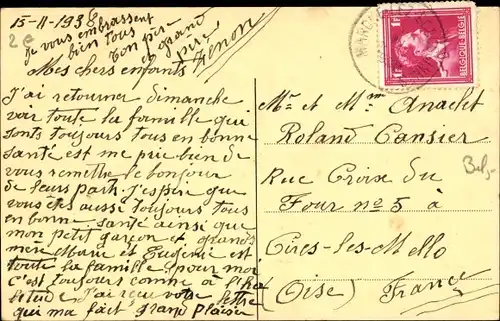 15-11-1938
2e
je vous embrassent
bien tous
ton pir
grand
pir
Zenon
Mes chers enfants
J'ai retourner dimanche
voir toute la famille qui
sonts toujours tous en bonne
santé est me prie bien de
vous remettre le bonjour
de leurs part. J'espin que
vous êtes aussi toujours tous
en bonne santé ainsi que
mon petit garçon et grands
mère Marie et Eugenie est
toute la famille, pour moi
c'est toujours comme à l'ha
bitude. J'ai reçu votre lettre
qui ma fait grand plaisir
MARCHI
1F 1F
BELGIQUE BELGIE
Mr et Mme Anaclet
Roland Cansier
Rue Croix du
Four nº 5 à
Cires-les-Mello
(Oise) France
Bels-